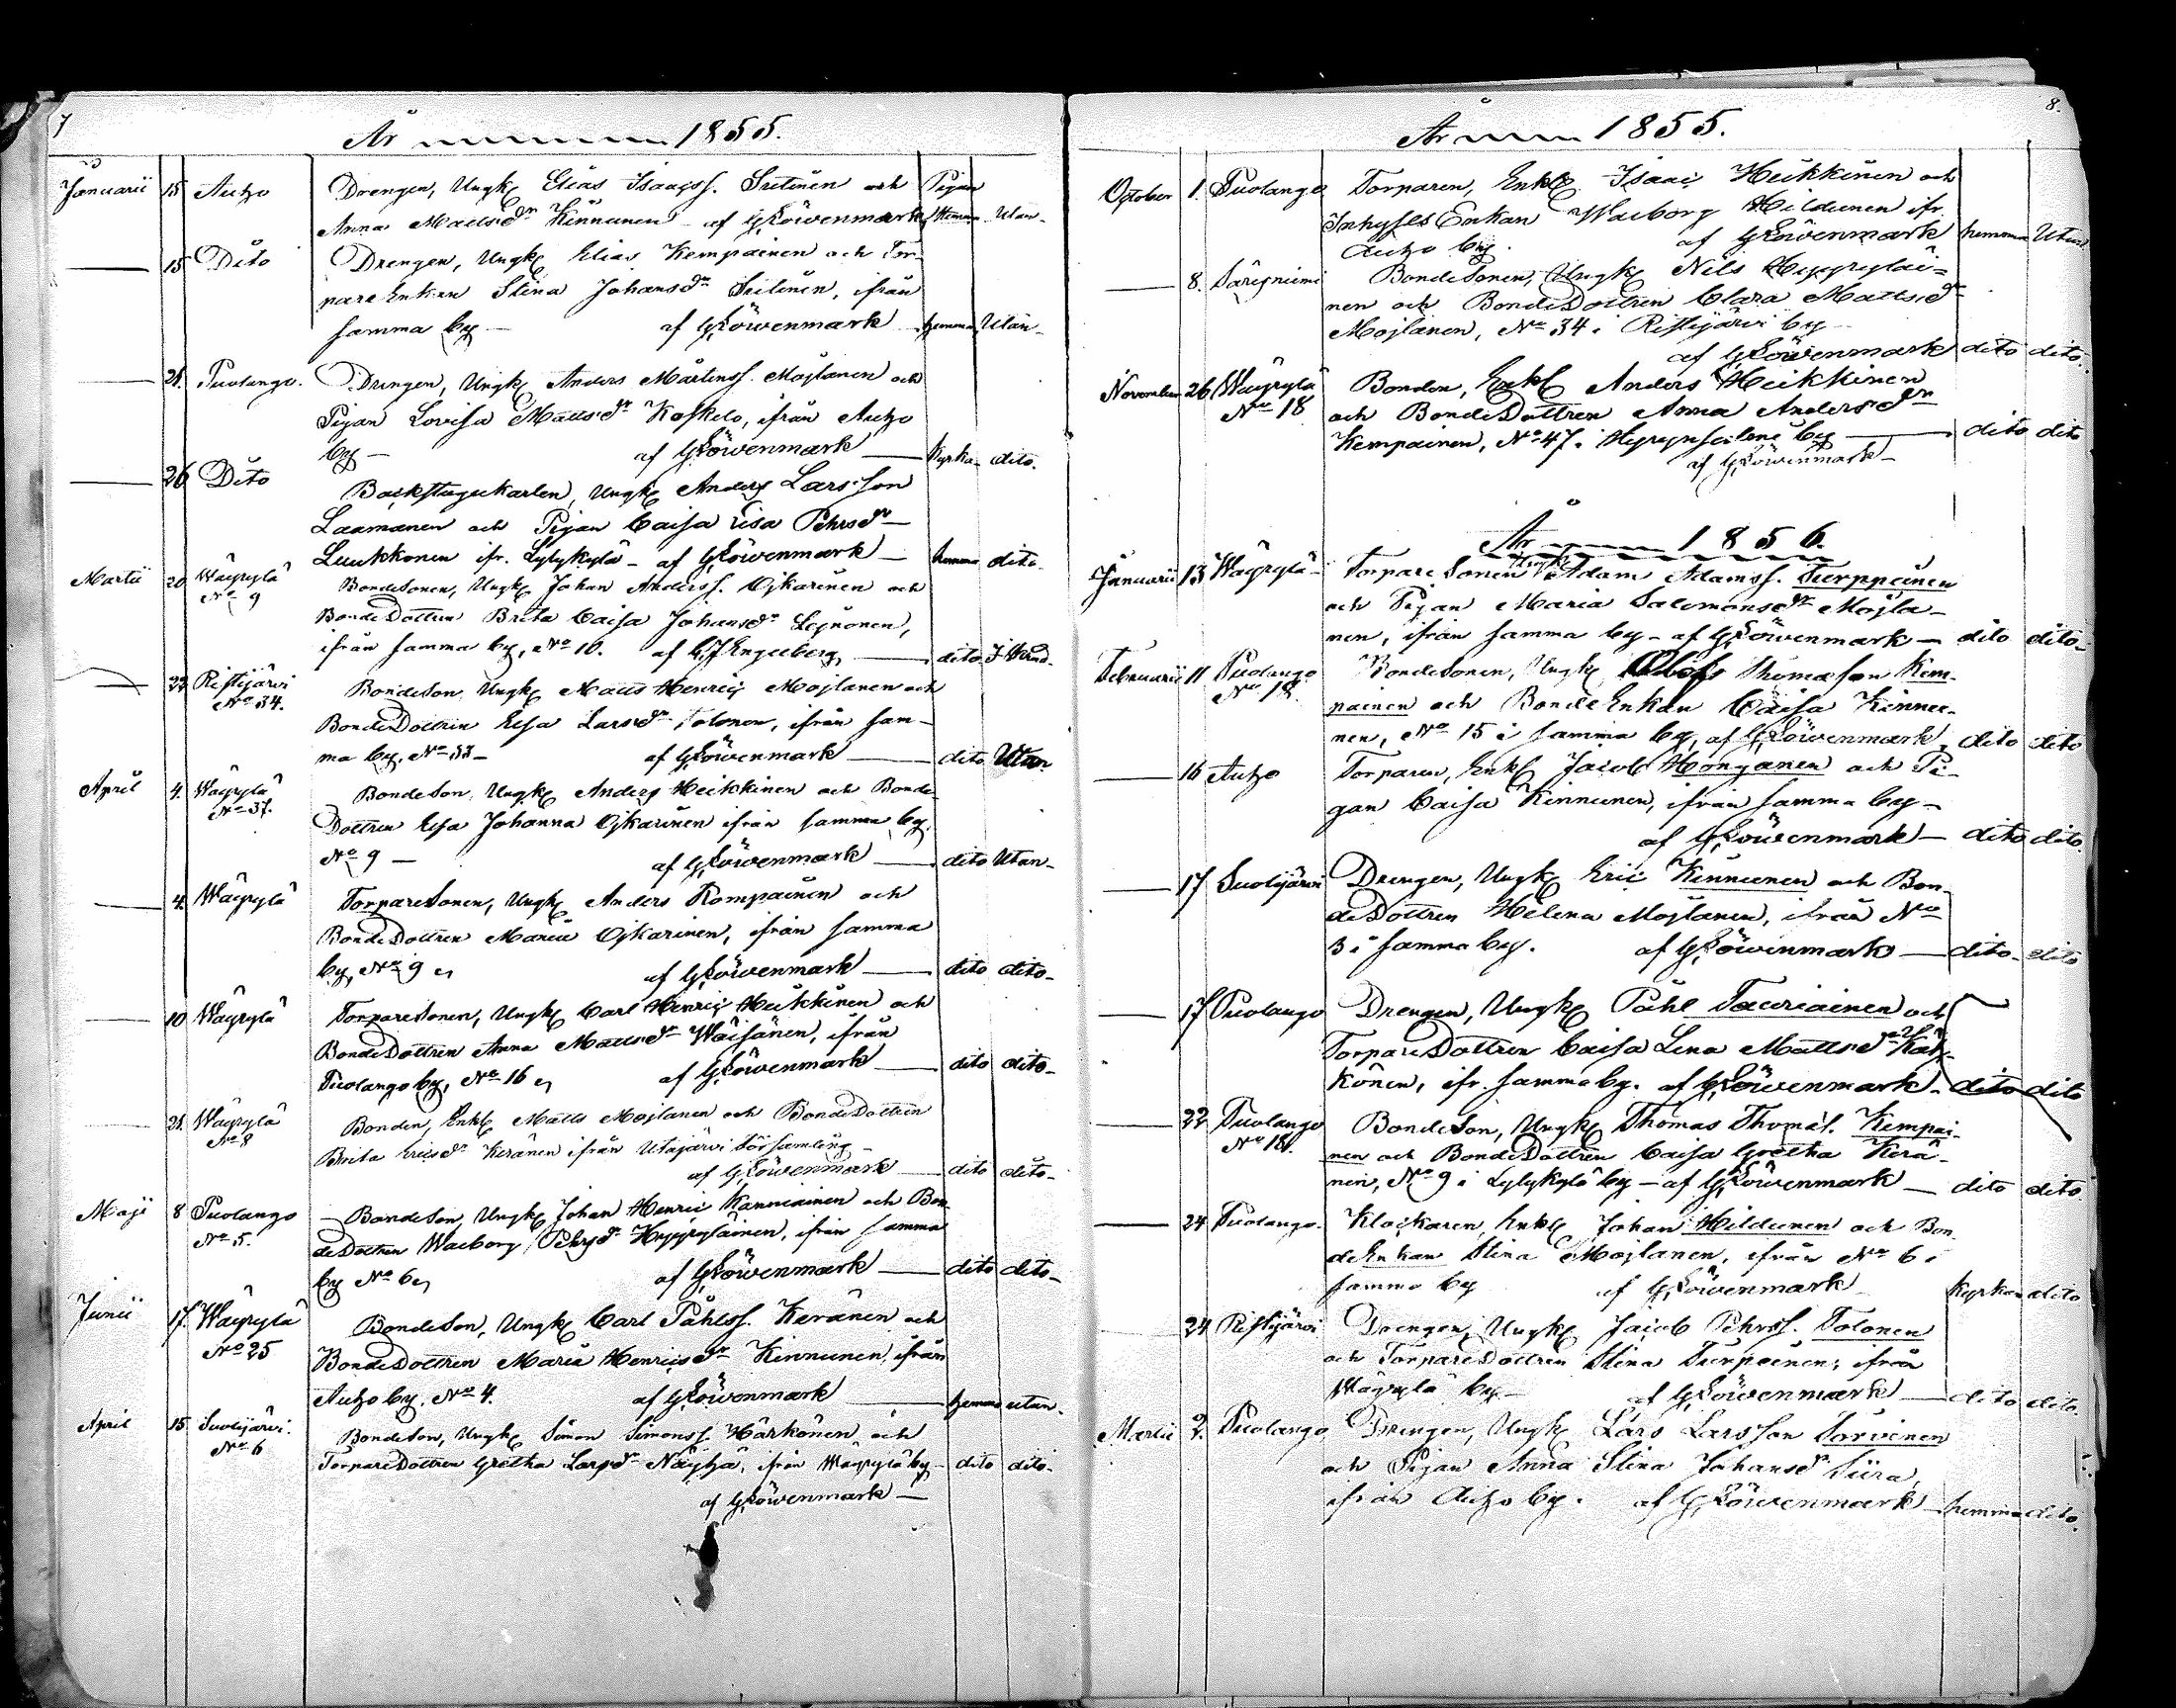 7
År 1855.
Januarii 15 Autjo Drengen, Ungk. Elias Isaacss. Seitinen och Pigan
Anna Mattsdr Kinnunen af GLöwenmark hemma Utan.
15 Dito Drengen, Ungk. Elias Kempainen och Tor-
pare Enkan Stina Johansdr Seitinen, ifrån
samma by af GLöwenmark hemma Utan
21. Puolango. Drengen, Ungk. Anders Mårtenss. Mojlanen och
Pigan Lovisa Mattsdr Koskelo, ifrån Autjo
by af GLöwenmark Kyrka dito.
26 Dito Backstugukarlen, Ungk. Anders Larsson
Laamanen och Pigan Caisa Lisa Pehrsdr
Luukkonen ifr. Lylykylä af GLöwenmark hemma dito.
Martii 20 Wäyrylä Bondesonen, Ungk. Johan Anderss. Ojkarinen och
No 9 BondeDottren Brita Caisa Johansdr Leinonen,
ifrån samma by, No 10. af Engelberg dito
22. Ristijärvi Bondeson Ungk. Matts Henric Mojlanen och
No 34. BondeDottren Elsa Larsdr Tolonen, ifrån sam-
ma by, No 33 af GLöwenmark dito Utan
April 4. Wäyrylä Bondeson, Ungk. Anders Heikkinen och Bonde
No 37. Dottren Elsa Johanna Ojkarinen ifrån samma by.
No 9 af GLöwenmark dito Utan
4. Wäyrylä Torparesonen, Ungk. Anders Kompainen och
BondeDottren Maria Ojkarinen, ifrån samma
by, No 9 af GLöwenmark dito dito
10 Wäyrylä Torparesonen, Ungk. Carl Henric Heikkinen och
BondeDottren Anna Mattsdr Wäisänen, ifrån
Puolango by, No 16 af GLöwenmark dito dito
21. Wäyrylä Bonden, Enkl. Matts Mojlanen och BondeDottren
No 8 Brita Ericsdr Keränen ifrån Utajärvi församling
af GLöwenmark dito dito
Maji 8 Puolango Bondeson, Ungk. Johan Henric Kanniainen och Bon-
No 5. deDottren Walborg Pehrsdr Hyyryläinen, ifrån samma
by No 6 af GLöwenmark dito dito
Junii 17. Wäyrylä Bondeson, Ungk. Carl Påhlss. Keränen och
No 25 BondeDottren Maria Henricsdr Kinnunen, ifrån
Autjo by, No 4. af GLöwenmark hemma utan
April 15 Suolijärvi. Bondeson, Ungk. Simon Simonss. Härkönen och
No 6 TorpareDottren Gretha Larsdr Näyhä, ifrån Wäyrylä by dito dito
af GLöwenmark
8.
År 1855.
October 1. Puolango Torparen, Enkl. Isaac Heikkinen och
Inhyses Enkan Walborg Hildunen ifr.
Autjo by. af GLöwenmark hemma Utan
8. Säresniemi Bondesonen, Ungk. Nils Hyyryläi-
nen och BondeDottren Clara Mattsdr
Mojlanen, No 34 i Ristijärvi by
af GLöwenmark dito dito
November 26 Wäyrylä Bonden, Enkl. Anders Heikkinen
No 18 och BondeDottren Anna Andersdr
Kempainen, No 47 i Hyrynsalmi by dito dito
af GLöwenmark
År 1856.
Januarii 13 Wäyrylä Torparesonen Ungk. Adam Adamss. Turppeinen
och Pigan Maria Salomonsdr Mojla-
nen, ifrån samma by af GLöwenmark dito dito
Februarii 11 Puolango Bondesonen, Ungk. Thomasson Kem-
No 18. painen och BondeEnkan Caisa Kinnu-
nen, No 15 i samma by, af GLöwenmark dito dito
16 Autjo Torparen, Enkl. Jacob Honganen och Pi-
gan Caisa Kinnunen, ifrån samma by
af GLöwenmark dito dito.
17 Suolijärvi Drengen, Ungk. Eric Kinnunen och Bon-
deDottren Helena Mojlanen, ifrån No
3 i samma by. af GLöwenmark dito dito
17 Puolango Drengen, Ungk. Påhl Tauriainen och
TorpareDottren Caisa Lena Mattsdr Kär-
könen, ifr. samma by. af GLöwenmark dito dito
22 Puolango BondeSon, Ungk. Thomas Thomæs. Kempai-
No 18. nen och BondeDottren Caisa Gretha Kerä-
nen, No 9 i Lylykylä by af GLöwenmark dito dito
24 Puolango. Klockaren, Enkl. Johan Hildunen och Bon-
deEnkan Stina Mojlanen, ifrån No 6 i
samma by af GLöwenmark Kyrkan dito
24 Ristijärvi Drengen, Ungk. Jacob Pehrss. Tolonen
och TorpareDottren Stina Turpeinen, ifrån
Wäyrylä by af GLöwenmark dito dito.
Martii 2. Puolango Drengen, Ungk. Lars Larsson Sorvinen
och Pigan Anna Stina Johansdr Siira,
ifrån Autjo by. af GLöwenmark hemma dito.